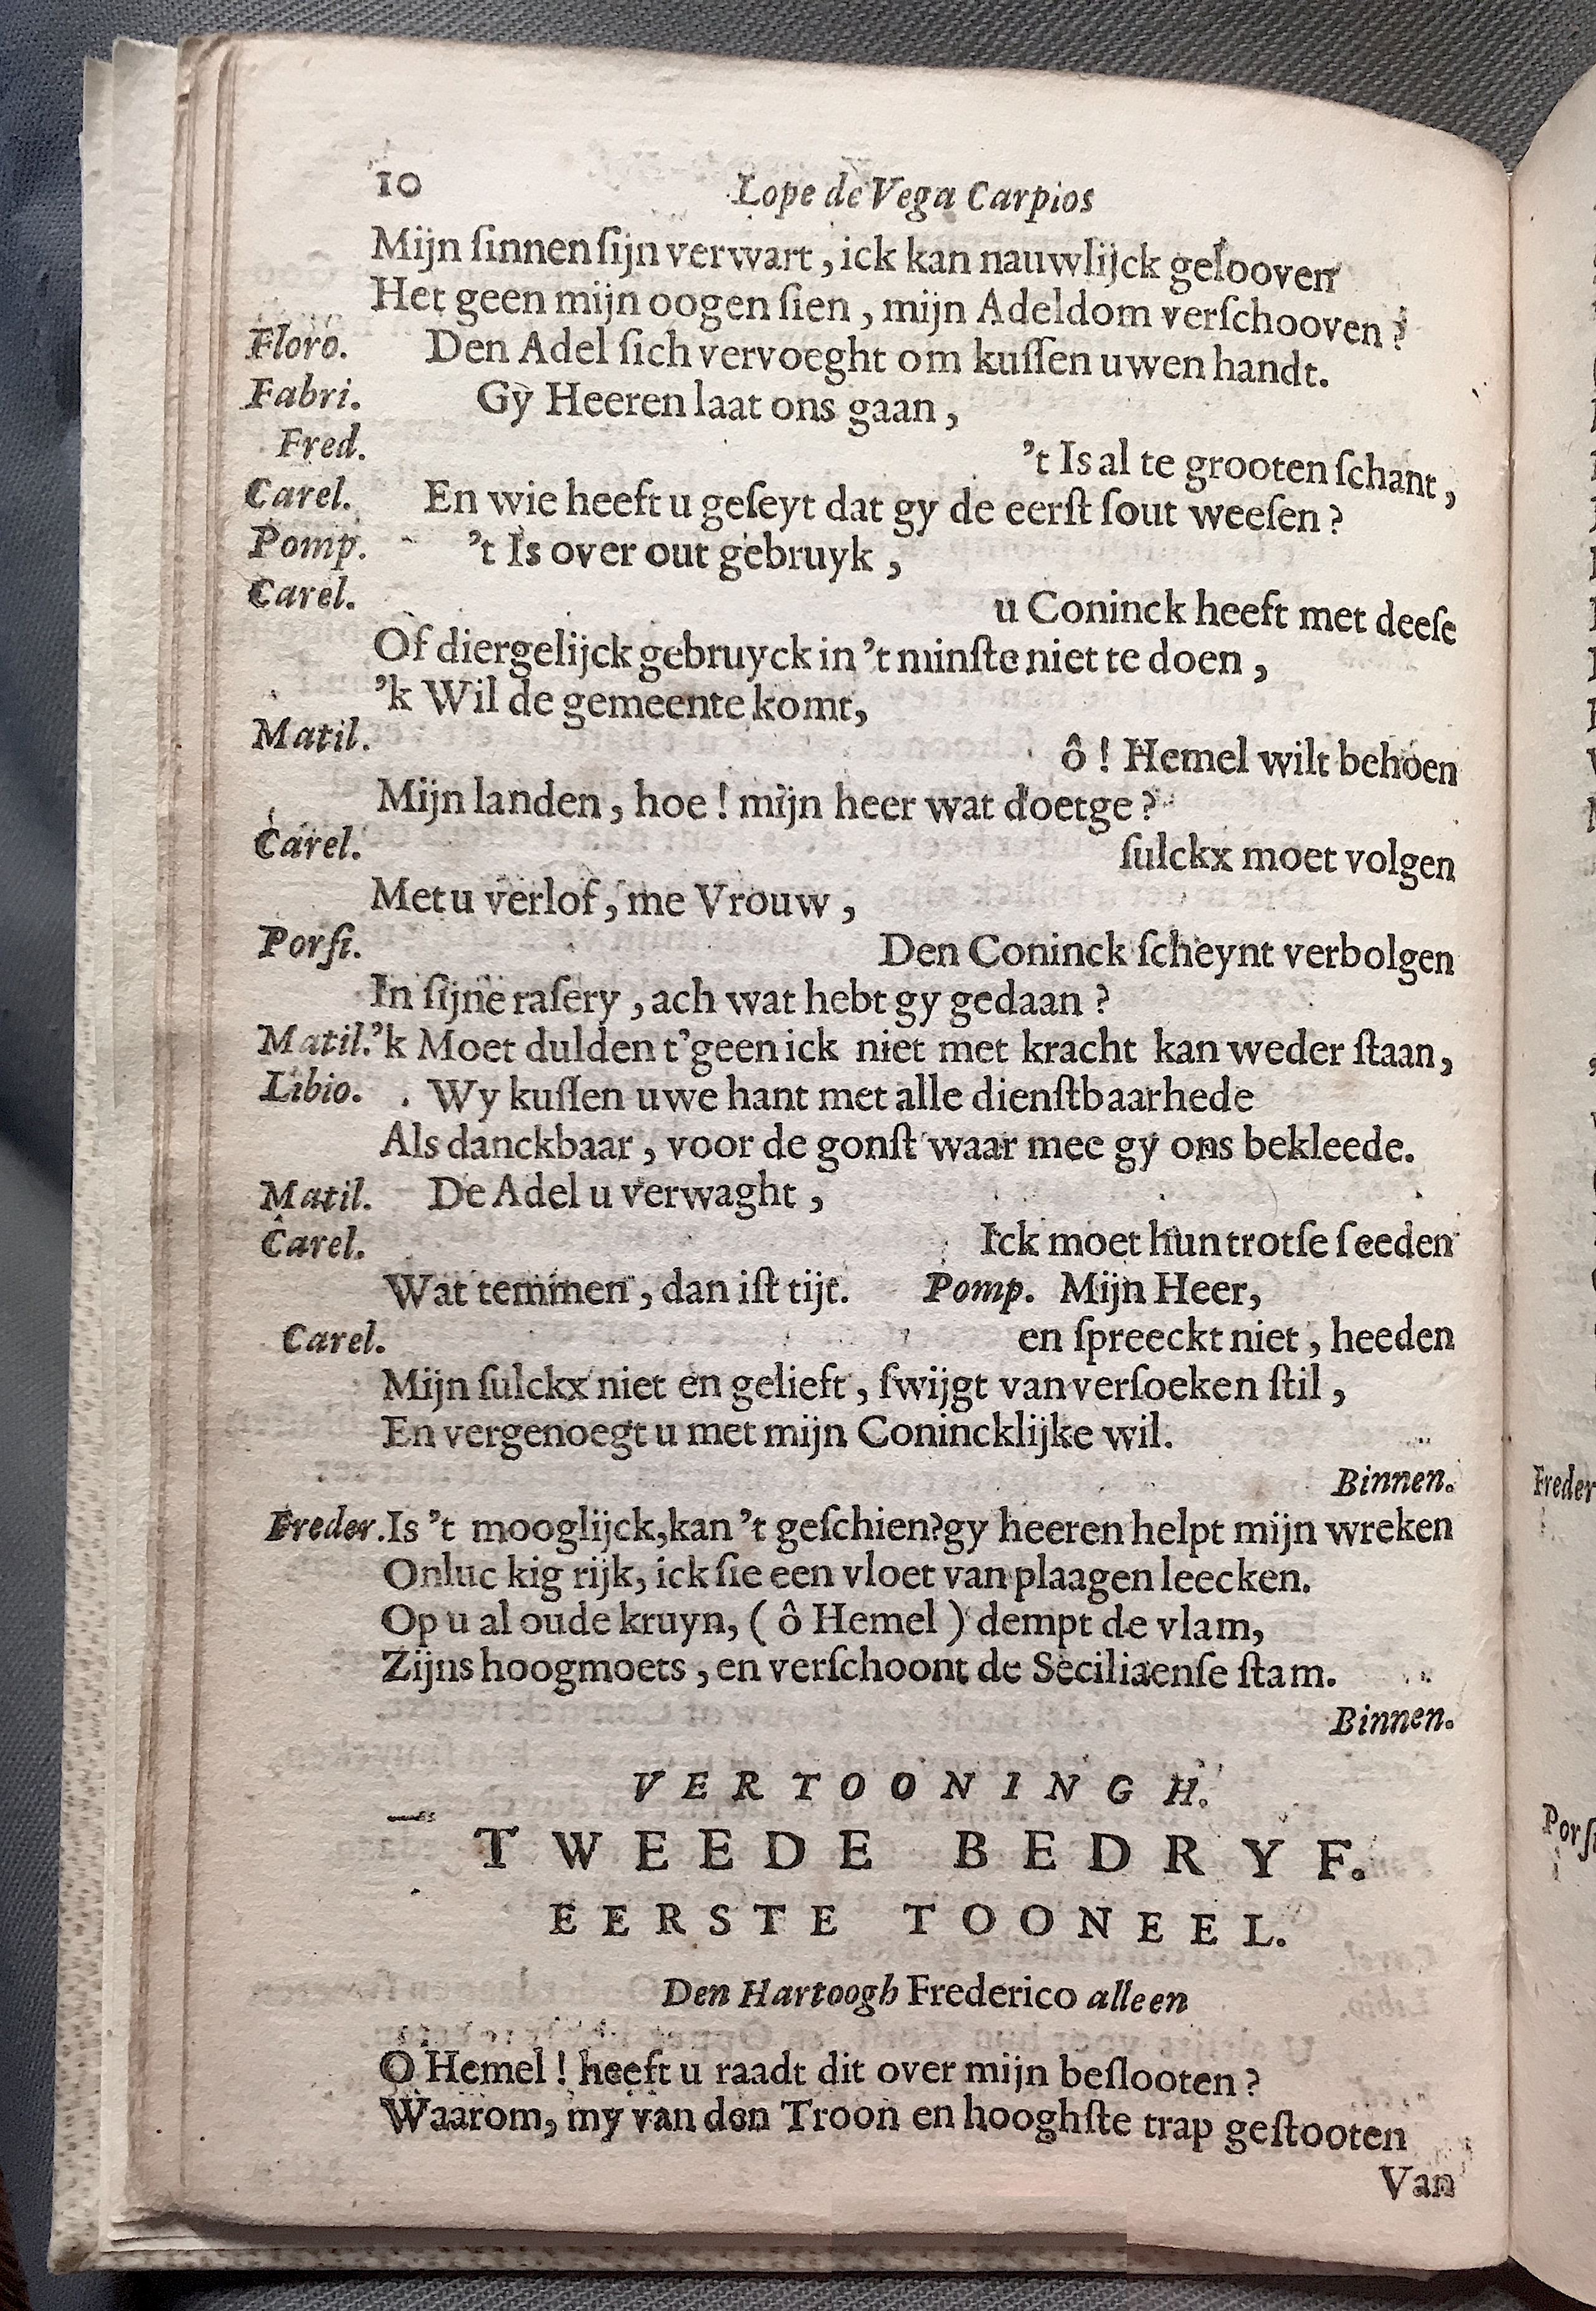 10 Lope de Vega Carpios
Mijn ſinnen ſijn verwart, ick kan nauwlijck gelooven
Het geen mijn oogen ſien, mijn Adeldom verſchooven?
Floro. Den Adel ſich vervoeght om kuſſen uwen handt.
Fabri. Gy Heeren laat ons gaan,
Fred. 't Is al te grooten ſchant,
Carel. En wie heeft u geſeyt dat gy de eerſt ſout weeſen?
Pomp. 't Is over out gebruyk,
Carel. u Coninck heeft met deeſe
Of diergelijck gebruyck in 't minſte niet te doen,
'k Wil de gemeente komt,
Matil. ô! Hemel wilt behoen
Mijn landen, hoe! mijn heer wat doetge?
Carel. ſulckx moet volgen
Met u verlof, me Vrouw,
Porſi. Den Coninck ſcheynt verbolgen
In ſijne raſery, ach wat hebt gy gedaan?
Matil. 'k Moet dulden t'geen ick niet met kracht kan weder ſtaan,
Libio. Wy kuſſen uwe hant met alle dienſtbaarhede
Als danckbaar, voor de gonſt waar mee gy ons bekleede.
Matil. De Adel u verwaght,
Carel. Ick moet hun trotſe ſeeden
Wat temmen, dan iſt tijt. Pomp. Mijn Heer,
Carel. en ſpreeckt niet, heeden
Mijn ſulckx niet en gelieft, ſwijgt van verſoeken ſtil,
En vergenoegt u met mijn Conincklijke wil.
Binnen.
Freder. Is 't mooglijck, kan 't geſchien? gy heeren helpt mijn wreken
Onluc kig rijk, ick ſie een vloet van plaagen leecken.
Op u al oude kruyn, (ô Hemel) dempt de vlam,
Zijns hoogmoets, en verſchoont de Seciliaenſe ſtam.
Binnen.
VERTOONINGH.
TWEEDE BEDRYF.
EERSTE TOONEEL.
Den Hartoogh Frederico alleen
O Hemel! heeft u raadt dit over mijn beſlooten?
Waarom, my van den Troon en hooghſte trap geſtooten
Van
Freder
Porſi